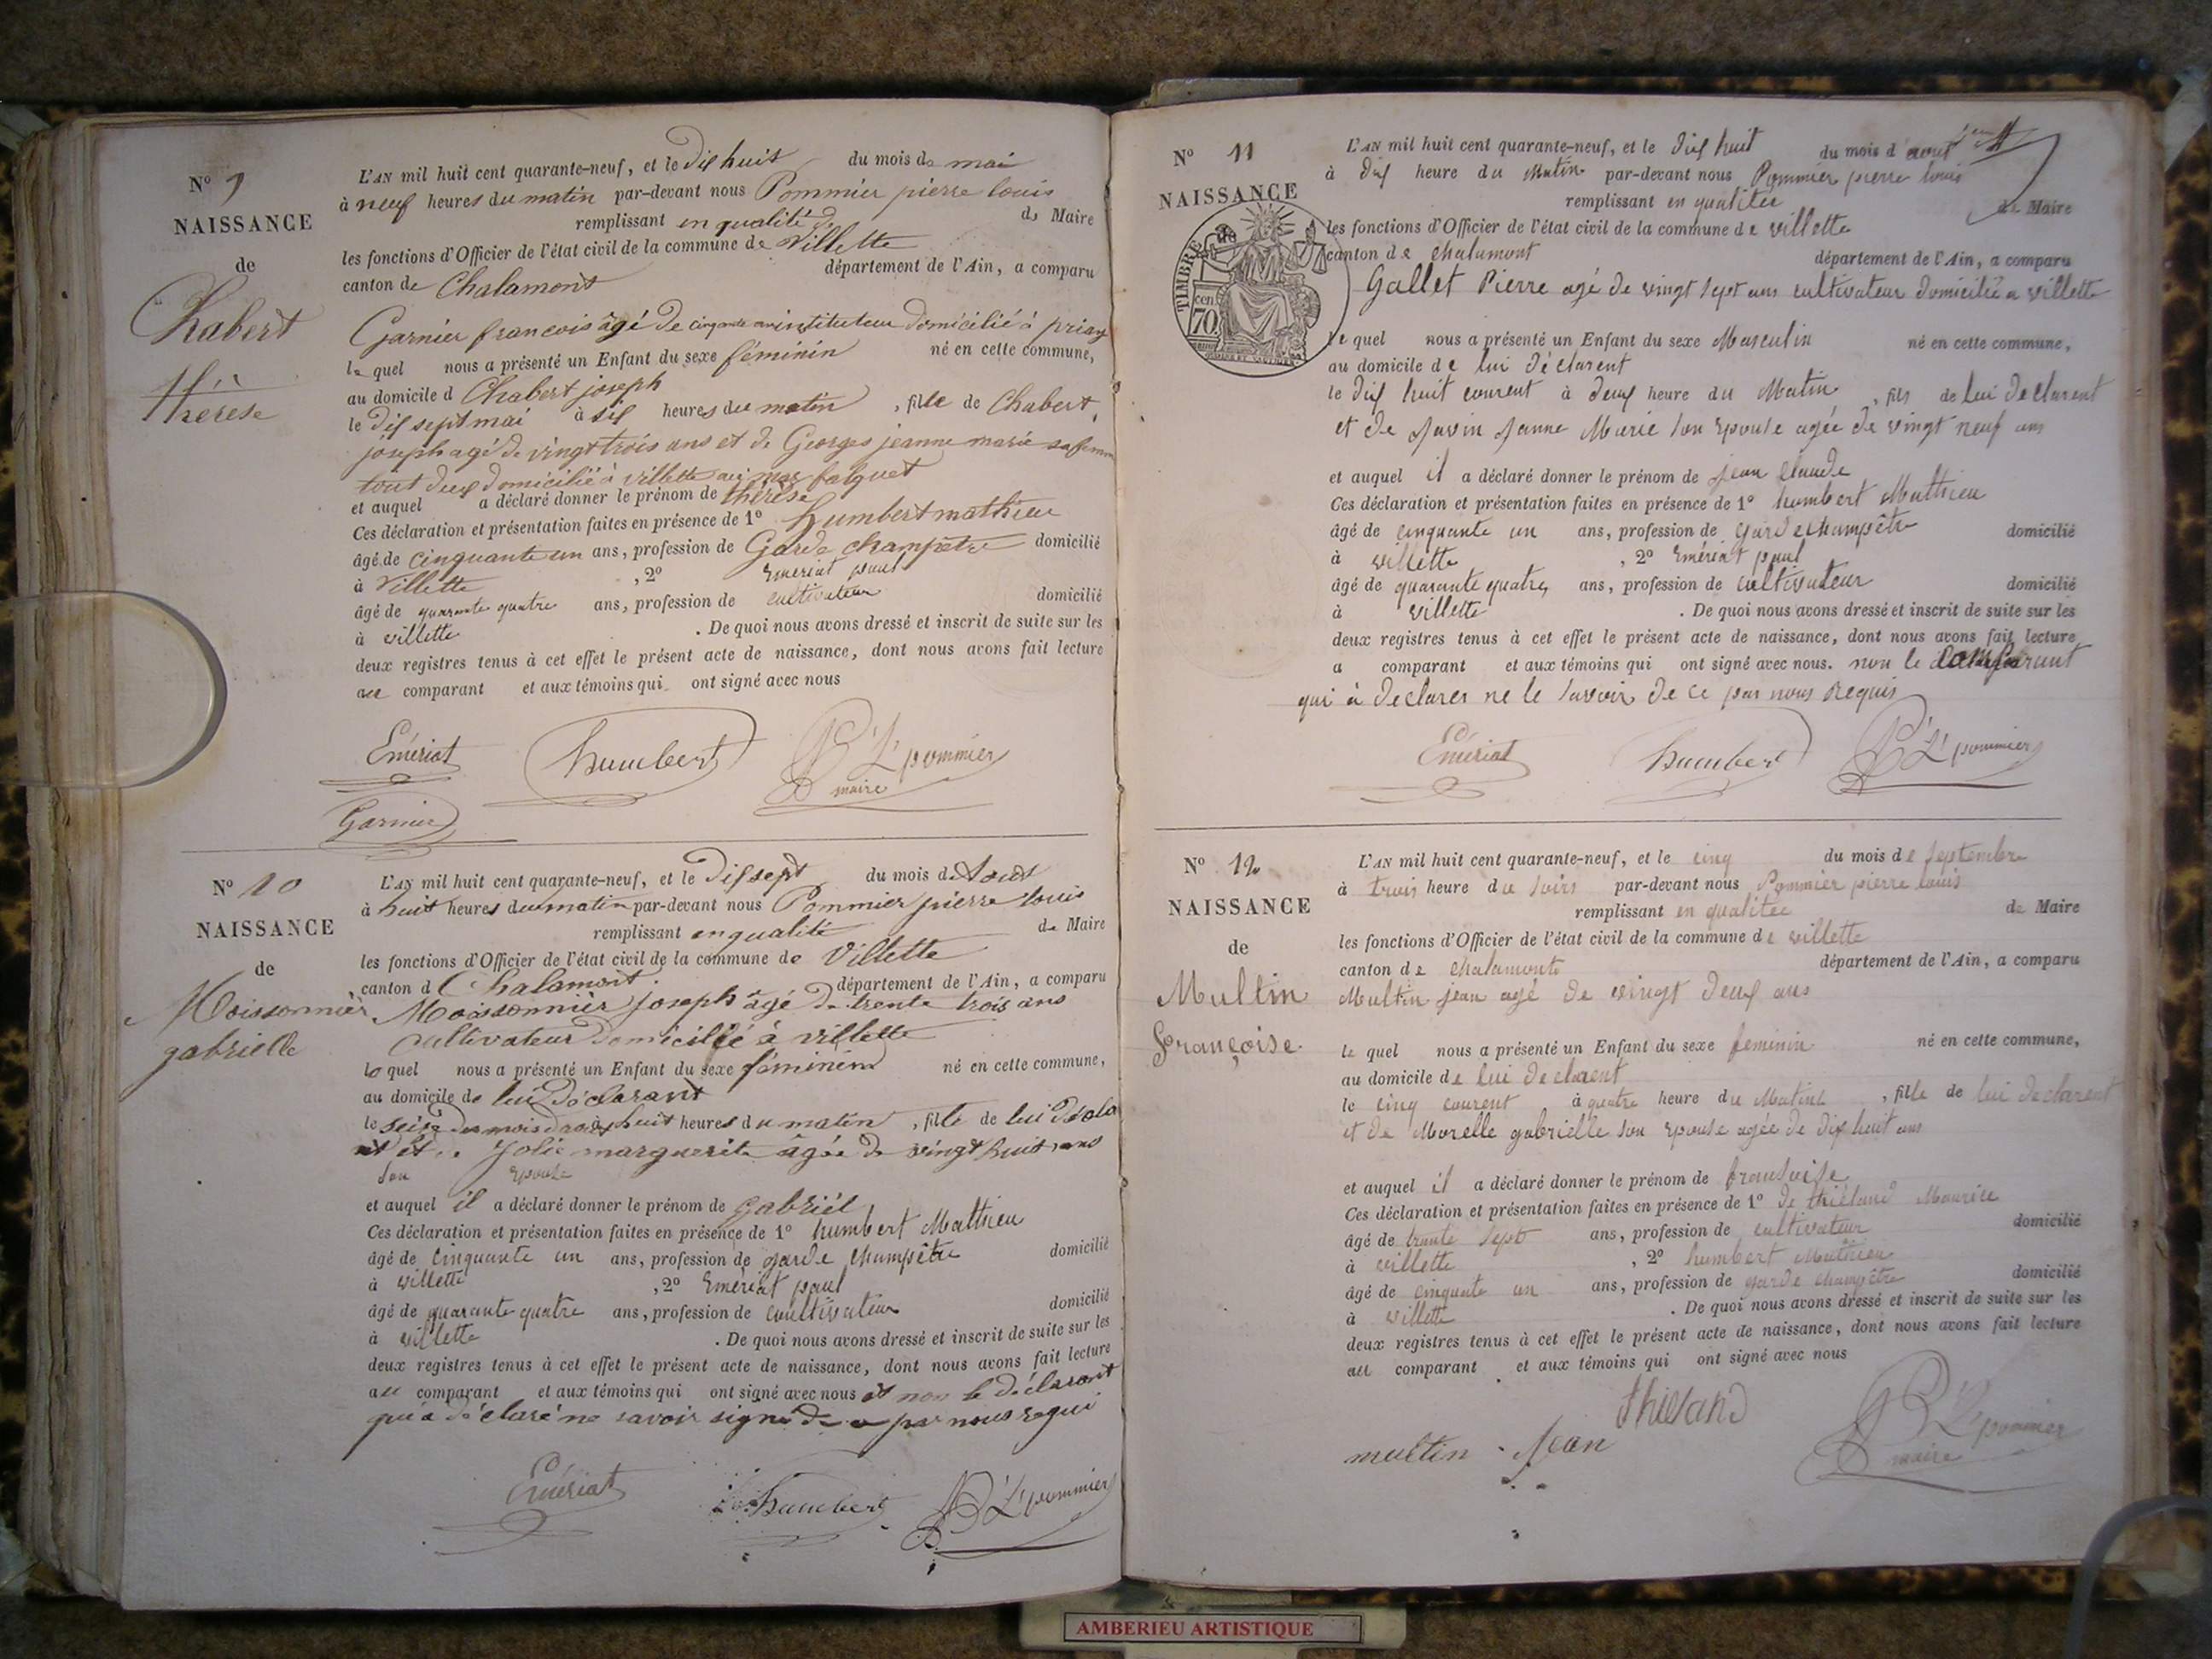 N° 9
NAISSANCE
de
Chabert
thérèse
L'AN mil huit cent quarante-neuf, et le dix huit du mois de mai
à neuf heures du matin par-devant nous Pommier pierre louis
remplissant en qualité de Maire
les fonctions d'Officier de l'état civil de la commune de villette
canton de Chalamont département de l'Ain, a comparu
Garnier francois âgé de cinquante ans instituteur domicilié à priay
le quel nous a présenté un Enfant du sexe féminin né en cette commune,
au domicile d Chabert joseph
le dix sept mai à six heures du matin , fille de Chabert
joseph agé de vingt trois ans et de Georges jeanne marie sa femme
tout deux domicilié à villette au mas falquet
et auquel a déclaré donner le prénom de thérèse
Ces déclaration et présentation faites en présence de 1° humbert mathieu
âgé de cinquante un ans, profession de Garde champetre domicilié
à Villette , 2° Emeriat paul
âgé de quarante quatre ans, profession de cultivateur domicilié
à villette . De quoi nous avons dressé et inscrit de suite sur les
deux registres tenus à cet effet le présent acte de naissance, dont nous avons fait lecture
au comparant et aux témoins qui ont signé avec nous
Emériat humbert P L pommier
maire
Garnier
N° 10
NAISSANCE
de
Moissonnièr
gabrielle
L'AN mil huit cent quarante-neuf, et le dix sept du mois d'Aout
à huit heures du matin par-devant nous Pommier pierre louis
remplissant en qualité de Maire
les fonctions d'Officier de l'état civil de la commune de Villette
canton d Chalamont département de l'Ain, a comparu
Moissonnièr joseph âgé de trente trois ans
cultivateur domicilié à villette
le quel nous a présenté un Enfant du sexe féminin né en cette commune,
au domicile de lui déclarant
le seize du mois d'aout à huit heures du matin , fille de lui décla
et de Jolie marguerite âgée de vingt huit ans
son epouse
et auquel il a déclaré donner le prénom de gabriél
Ces déclaration et présentation faites en présence de 1° humbert Mathieu
âgé de cinquante un ans, profession de garde champêtre domicilié
à villette , 2° Emériat paul
âgé de quarante quatre ans, profession de cultivateur domicilié
à villette . De quoi nous avons dressé et inscrit de suite sur les
deux registres tenus à cet effet le présent acte de naissance, dont nous avons fait lecture
au comparant et aux témoins qui ont signé avec nous et non le déclarant
qui a déclaré ne savoir signé de ce par nous requi
Emériat humbert P L pommier
N° 11
NAISSANCE
TIMBRE
70 cen
L'AN mil huit cent quarante-neuf, et le dix huit du mois d aout
à dix heure du matin par-devant nous Pommier pierre louis
remplissant en qualitée de Maire
les fonctions d'Officier de l'état civil de la commune de villette
canton de chalamont département de l'Ain, a comparu
Gallet Pierre agé de vingt sept ans cultivateur domicilié a villette
le quel nous a présenté un Enfant du sexe Masculin né en cette commune,
au domicile de lui déclarent
le dix huit courent à deux heure du Matin , fils de lui declarent
et de Javin Janne Marie son epouse agée de vingt neuf ans
et auquel il a déclaré donner le prénom de jean claude
Ces déclaration et présentation faites en présence de 1° humbert Mathieu
âgé de cinquante un ans, profession de garde champêtre domicilié
à villette , 2° Emériat paul
âgé de quarante quatre ans, profession de cultivateur domicilié
à villette . De quoi nous avons dressé et inscrit de suite sur les
deux registres tenus à cet effet le présent acte de naissance, dont nous avons fait lecture
a comparant et aux témoins qui ont signé avec nous. non le comparant
qui à declarer ne le savoir de ce par nous requis
Emériat humbert P L pommier
N° 12
NAISSANCE
de
Multin
Françoise
L'AN mil huit cent quarante-neuf, et le cinq du mois de septembre
à trois heure du soir par-devant nous Pommier pierre louis
remplissant en qualitée de Maire
les fonctions d'Officier de l'état civil de la commune de villette
canton de chalamont département de l'Ain, a comparu
Multin jean agé de vingt deux ans
le quel nous a présenté un Enfant du sexe feminin né en cette commune,
au domicile de lui declarent
le cinq courent à quatre heure du Matin , fille de lui declarent
et de Morelle gabrielle son epouse agée de dix huit ans
et auquel il a déclaré donner le prénom de fransoise
Ces déclaration et présentation faites en présence de 1° de thieland Maurice
âgé de trante sept ans, profession de cultivateur domicilié
à villette , 2° humbert Mathieu
âgé de cinquante un ans, profession de garde champêtre domicilié
à villette . De quoi nous avons dressé et inscrit de suite sur les
deux registres tenus à cet effet le présent acte de naissance, dont nous avons fait lecture
au comparant et aux témoins qui ont signé avec nous
thieland
multin Jean P L pommier
maire
AMBERIEU ARTISTIQUE